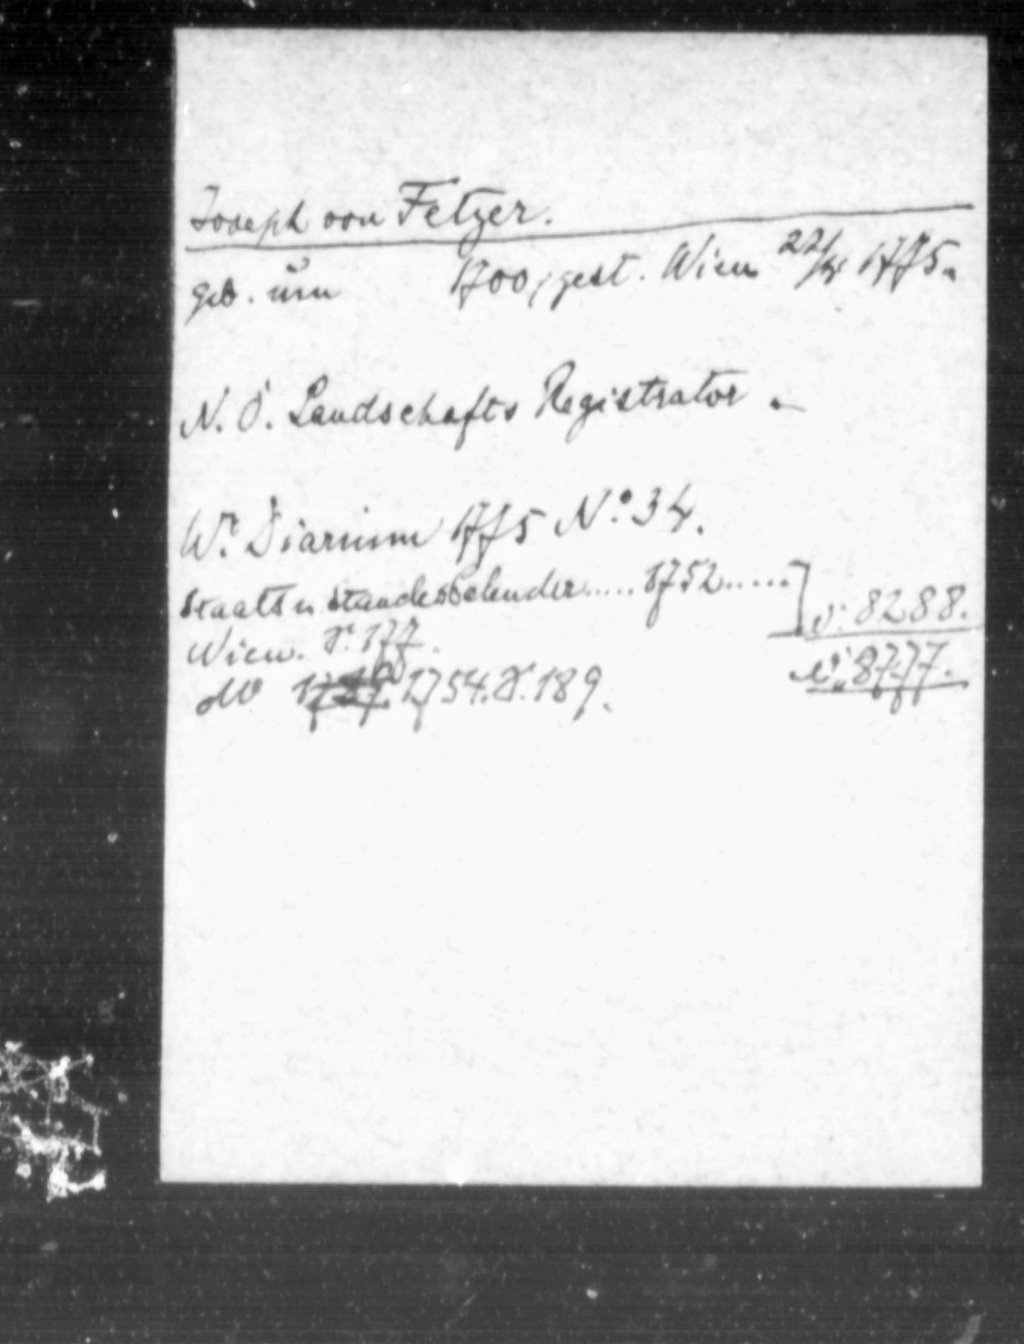 Joseph von Fetzer.
geb. um 1700, gest. Wien 22/4 1775.
N. Ö. Landschafts Registrator.
Wr. Diarium 1775 No. 34.
Staats u. Standeskalender ..... 1752 ..... N. 8288.
Wien. S. 177.
do 1754. S. 189. N. 8777.